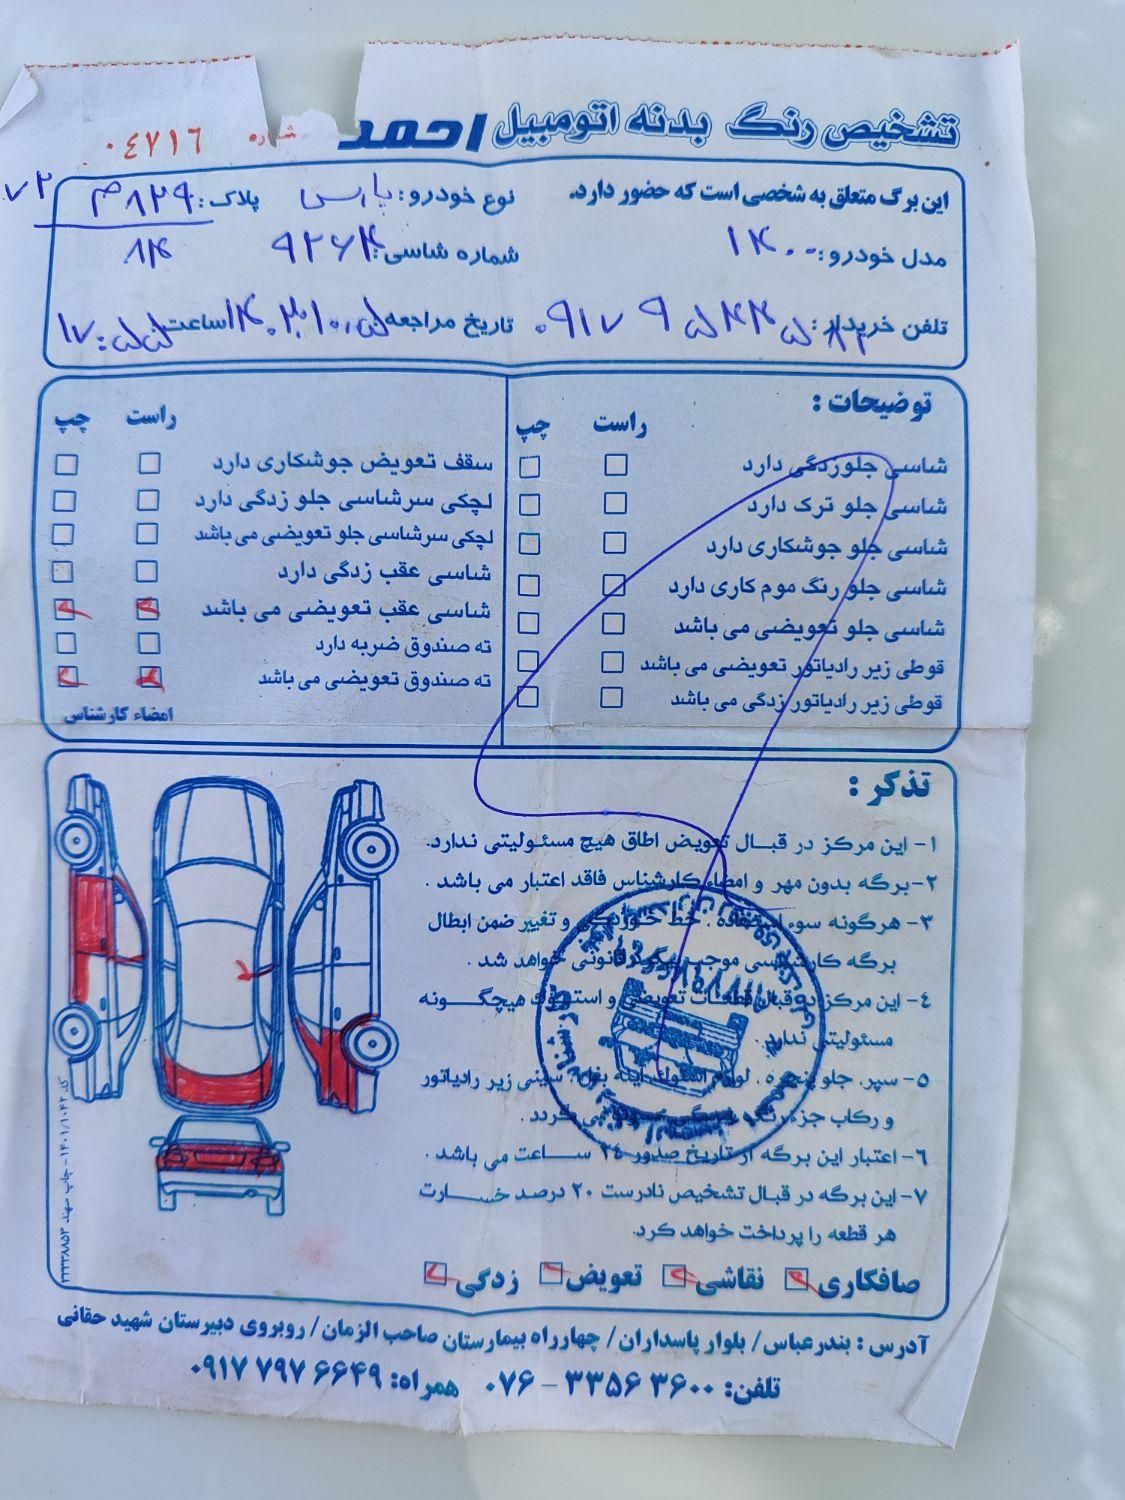 تشخیص رنگ بدنه اتومبیل احمد
شماره ۰٤۷۱٦
این برگ متعلق به شخصی است که حضور دارد.
نوع خودرو: پارس
پلاک: ۸۲۹م ۷۲
۸۴
مدل خودرو: ۱۴۰۰
شماره شاسی: ۹۲۶۴
تلفن خریدار:
تاریخ مراجعه
ساعت ۱۷:۵۵
توضیحات :
راست چپ
شاسی جلوزدگی دارد
شاسی جلو ترک دارد
شاسی جلو جوشکاری دارد
شاسی جلو رنگ موم کاری دارد
شاسی جلو تعویضی می باشد
قوطی زیر رادیاتور تعویضی می باشد
قوطی زیر رادیاتور زدگی می باشد
راست چپ
سقف تعویض جوشکاری دارد
لچکی سرشاسی جلو زدگی دارد
لچکی سرشاسی جلو تعویضی می باشد
شاسی عقب زدگی دارد
شاسی عقب تعویضی می باشد
ته صندوق ضربه دارد
ته صندوق تعویضی می باشد
امضاء کارشناس
تذکر :
۱- این مرکز در قبال تعویض اطاق هیچ مسئولیتی ندارد.
۲-برگه بدون مهر و امضاء کارشناس فاقد اعتبار می باشد .
۳- هرگونه سوء استفاده . خط خوردگی و تغییر ضمن ابطال
برگه کارشناسی موجب پیگرد قانونی خواهد شد .
٤- این مرکز در قبال قطعات تعویضی و استوک هیچگونه
مسئولیتی ندارد .
۵- سپر. جلو پنجره . لوازم استوک آینه بغل. سینی زیر رادیاتور
و رکاب جزء رنگ می گردد .
۶- اعتبار این برگه از تاریخ صدور ۲٤ ساعت می باشد .
۷- این برگه در قبال تشخیص نادرست ۲۰ درصد خسارت
هر قطعه را پرداخت خواهد کرد.
صافکاری نقاشی تعویض زدگی
آدرس : بندرعباس/ بلوار پاسداران/ چهارراه بیمارستان صاحب الزمان/ روبروی دبیرستان شهید حقانی
تلفن: ۳۳۵۶۳۶۰۰ - ۰۷۶ همراه: ۰۹۱۷۷۹۷۶۶۴۹